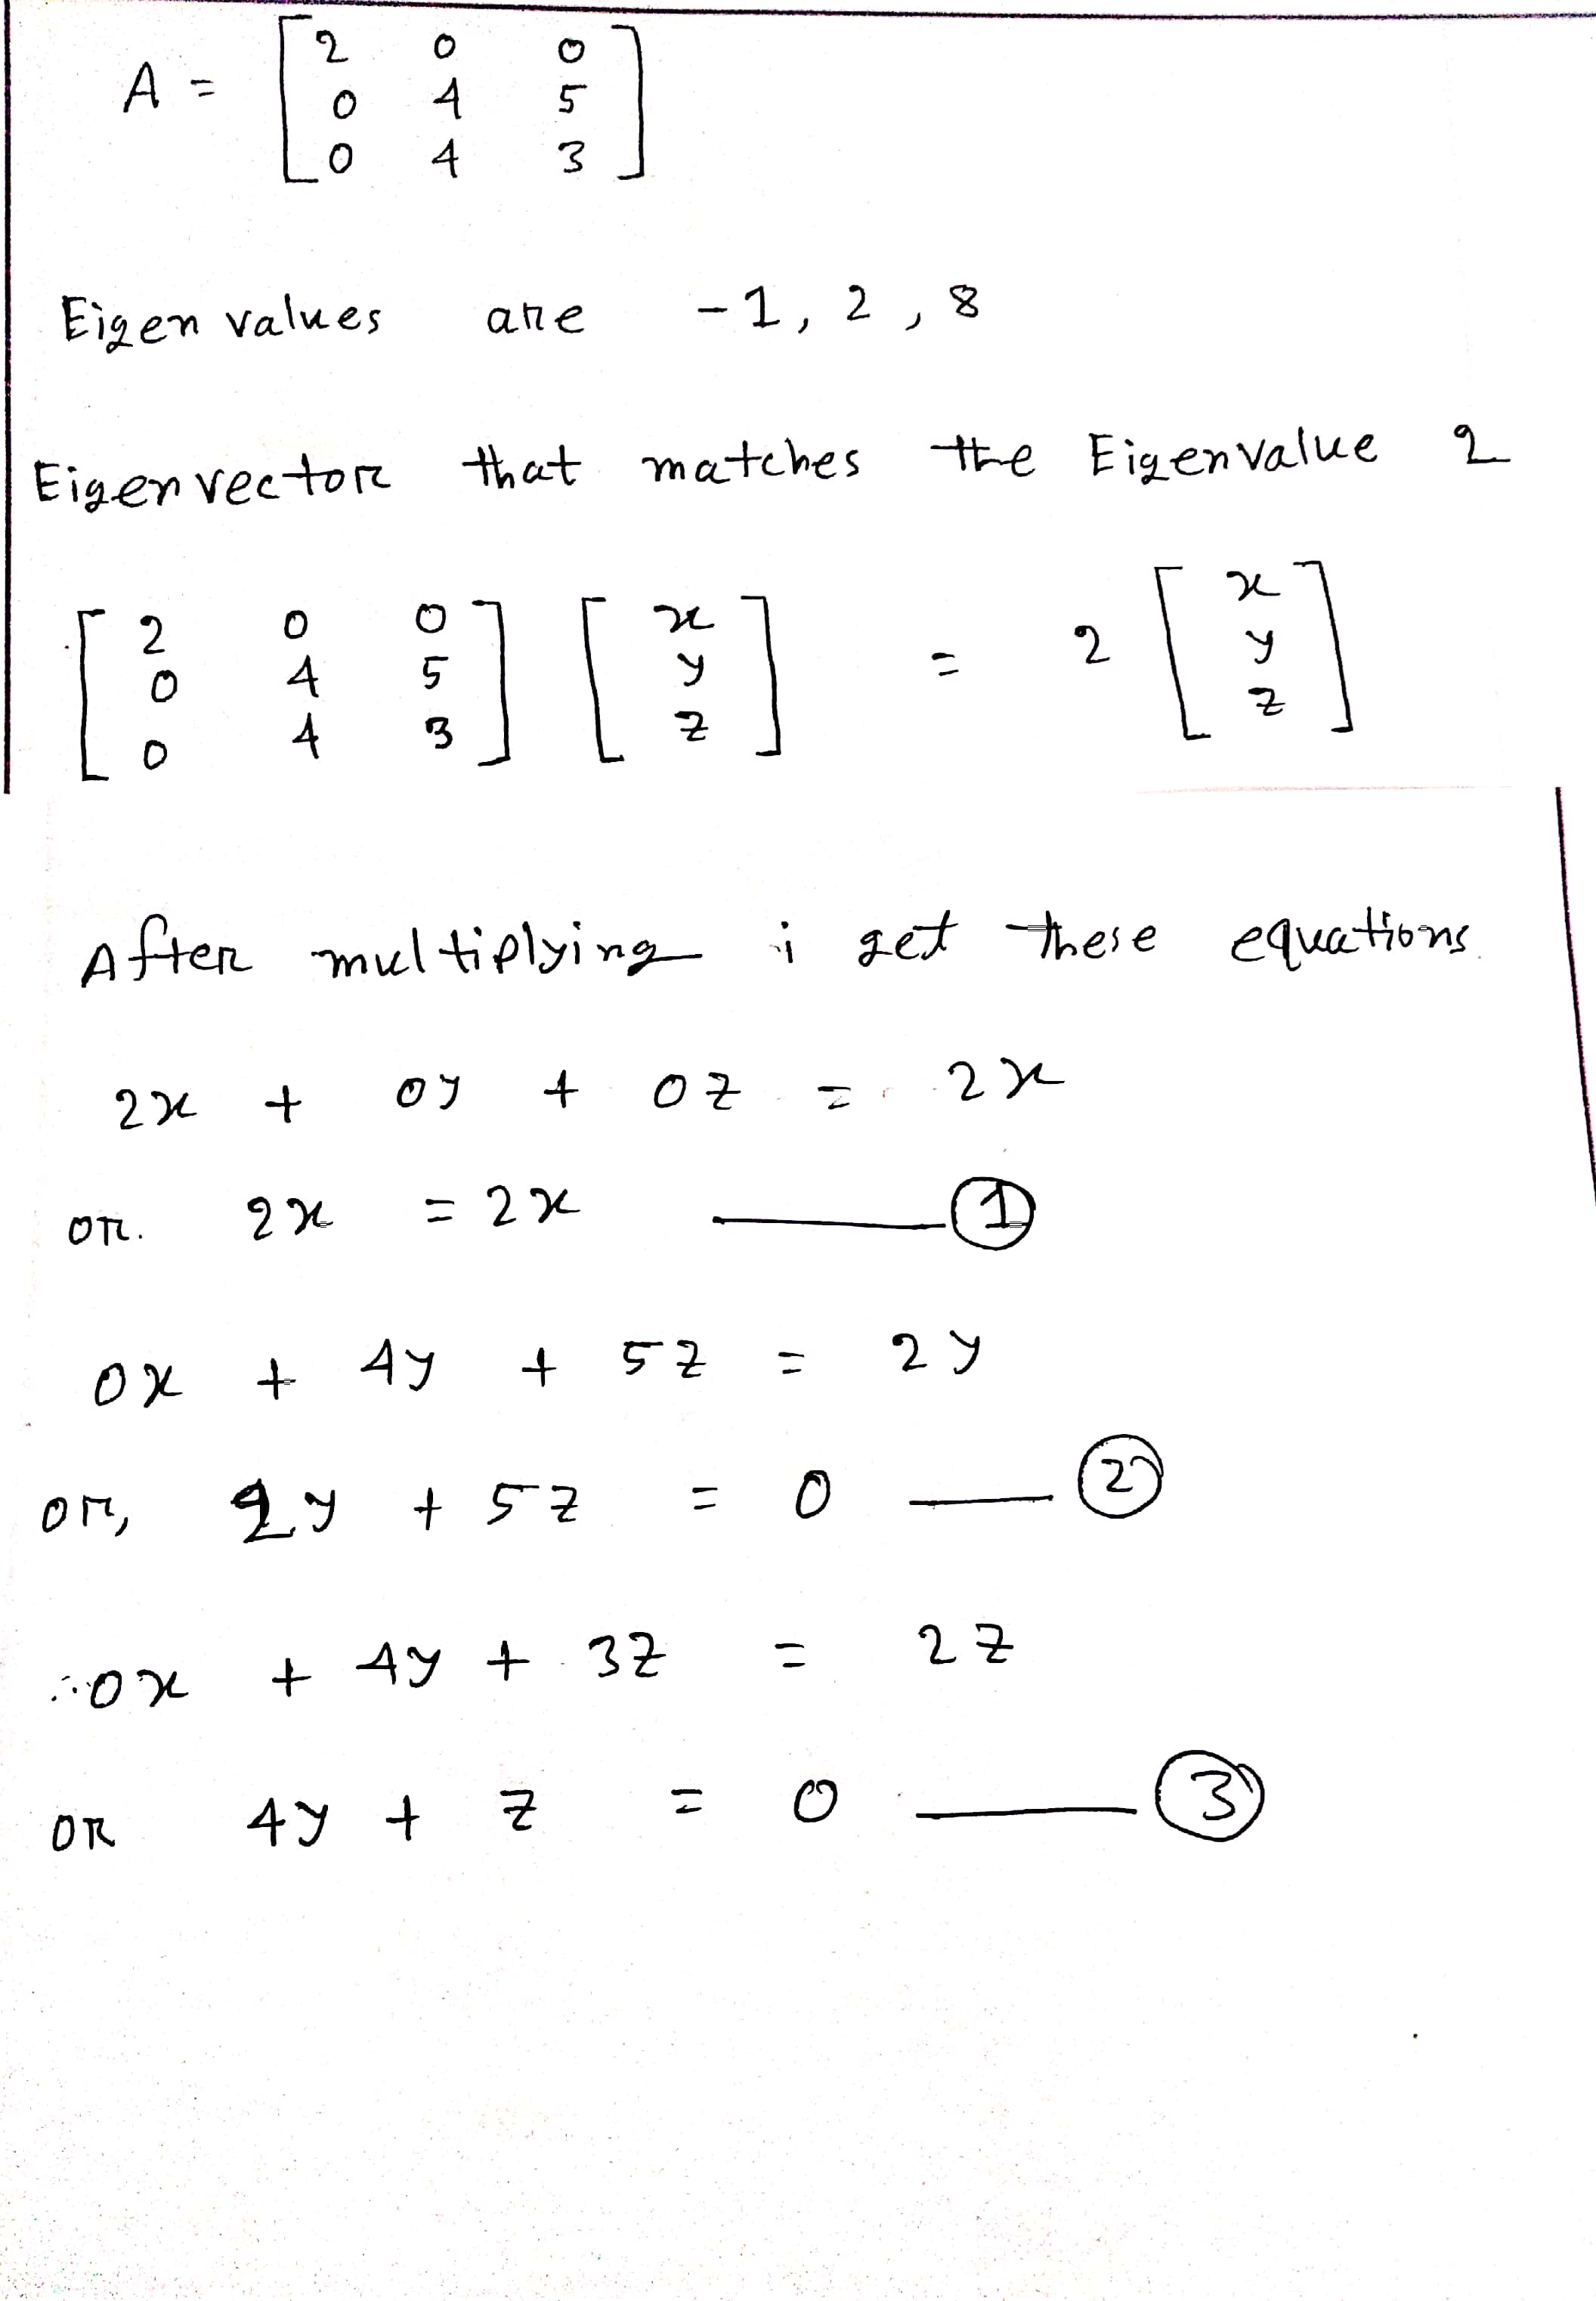 A = [ 2 0 0
0 4 5
0 4 3 ]
Eigen values are -1, 2, 8
Eigen vector that matches the Eigenvalue 2
[ 2 0 0 ] [ x ] = 2 [ x ]
[ 0 4 5 ] [ y ] [ y ]
[ 0 4 3 ] [ z ] [ z ]
After multiplying i get these equations.
2x + 0y + 0z = 2x
or. 2x = 2x —— ①
0x + 4y + 5z = 2y
or, 2y + 5z = 0 —— ②
0x + 4y + 3z = 2z
or 4y + z = 0 —— ③